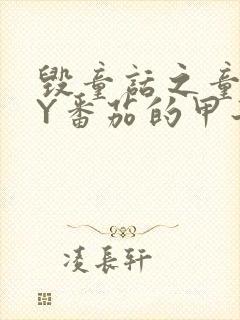 毁童话之童
Y番茄的甲
凌長轩